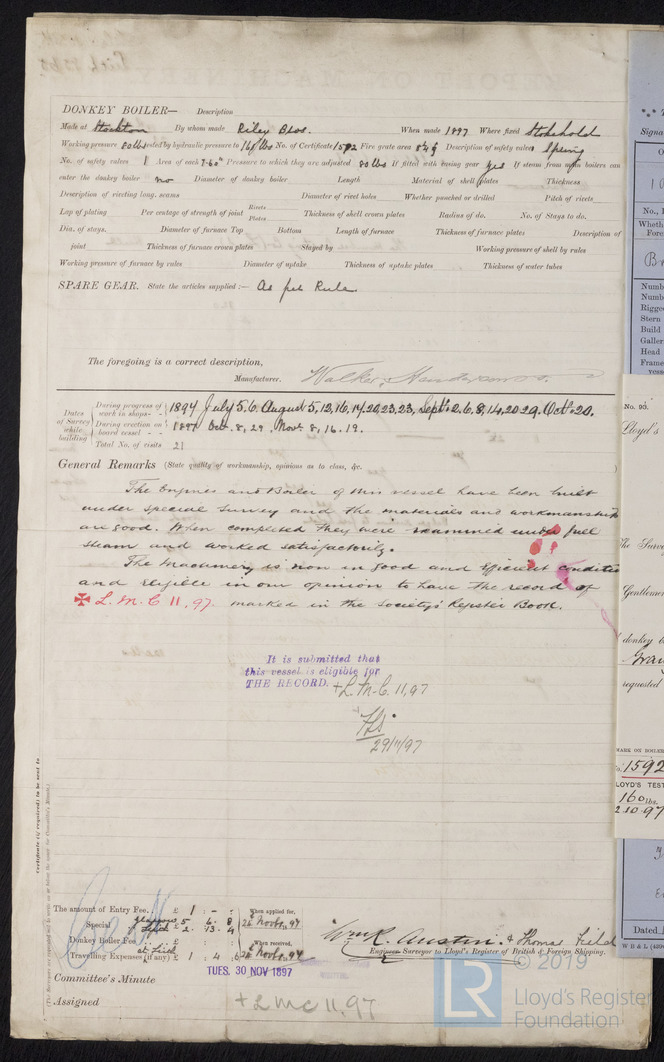 DONKEY BOILER— Description
Made at Stockton By whom made Riley Bros. When made 1897 Where fixed Stokehold
Working pressure 80 lbs tested by hydraulic pressure to 160 lbs No. of Certificate 1592 Fire grate area Description of safety valves Spring
No. of safety valves 1 Area of each 7.60" Pressure to which they are adjusted 80 lbs If fitted with easing gear yes If steam from main boilers can
enter the donkey boiler no Diameter of donkey boiler Length Material of shell plates Thickness
Description of riveting long. seams Diameter of rivet holes Whether punched or drilled Pitch of rivets
Lap of plating Per centage of strength of joint Rivets Plates Thickness of shell crown plates Radius of do. No. of Stays to do.
Dia. of stays. Diameter of furnace Top Bottom Length of furnace Thickness of furnace plates Description of
joint Thickness of furnace crown plates Stayed by Working pressure of shell by rules
Working pressure of furnace by rules Diameter of uptake Thickness of uptake plates Thickness of water tubes
SPARE GEAR. State the articles supplied :— As per Rule
The foregoing is a correct description,
Manufacturer. Walker, Henderson & Co.
Dates of Survey while building
During progress of work in shops - - 1897 July 5. 6. August 5, 12, 16, 17, 20, 23, 23, Septr 2. 6. 8, 14, 20 29. Octr 20.
During erection on board vessel - - 1897 Oct. 8, 29, Novr 8, 16. 19.
Total No. of visits 21
General Remarks (State quality of workmanship, opinions as to class, &c.
The Engines and Boiler of this vessel have been built
under special survey and the materials and workmanship
are good. When completed they were examined under full
steam and worked satisfactorily.
The Machinery is now in good and efficient condition
and eligible in our opinion to have the record of
✠ L. M. C 11, 97. marked in the Society's Register Book.
It is submitted that
this vessel is eligible for
THE RECORD. + L. M. C. 11, 97
29/11/97
Certificate (if required) to be sent to
The amount of Entry Fee. £ 1 : - : - When applied for,
Special Glasgow £ 5 : 6 : 8 26 Novbr 97
Leith £ 2. 13. 4
Donkey Boiler Fee £ When received,
Travelling Expenses (if any) £ 1 . 4 . 6 Novbr 97
Wm R. Austin. & Thomas Field
Engineer Surveyor to Lloyd's Register of British & Foreign Shipping.
TUES. 30 NOV 1897
Committee's Minute
Assigned + L M C 11, 97
© 2019
LR
Lloyd's Register
Foundation
No. 93.
Lloyd's
The Surv
Gentlemen
donkey b
requested
MARK ON BOILER
1592
LOYD'S TEST
160 lbs.
2.10.97
Dated
W B & L